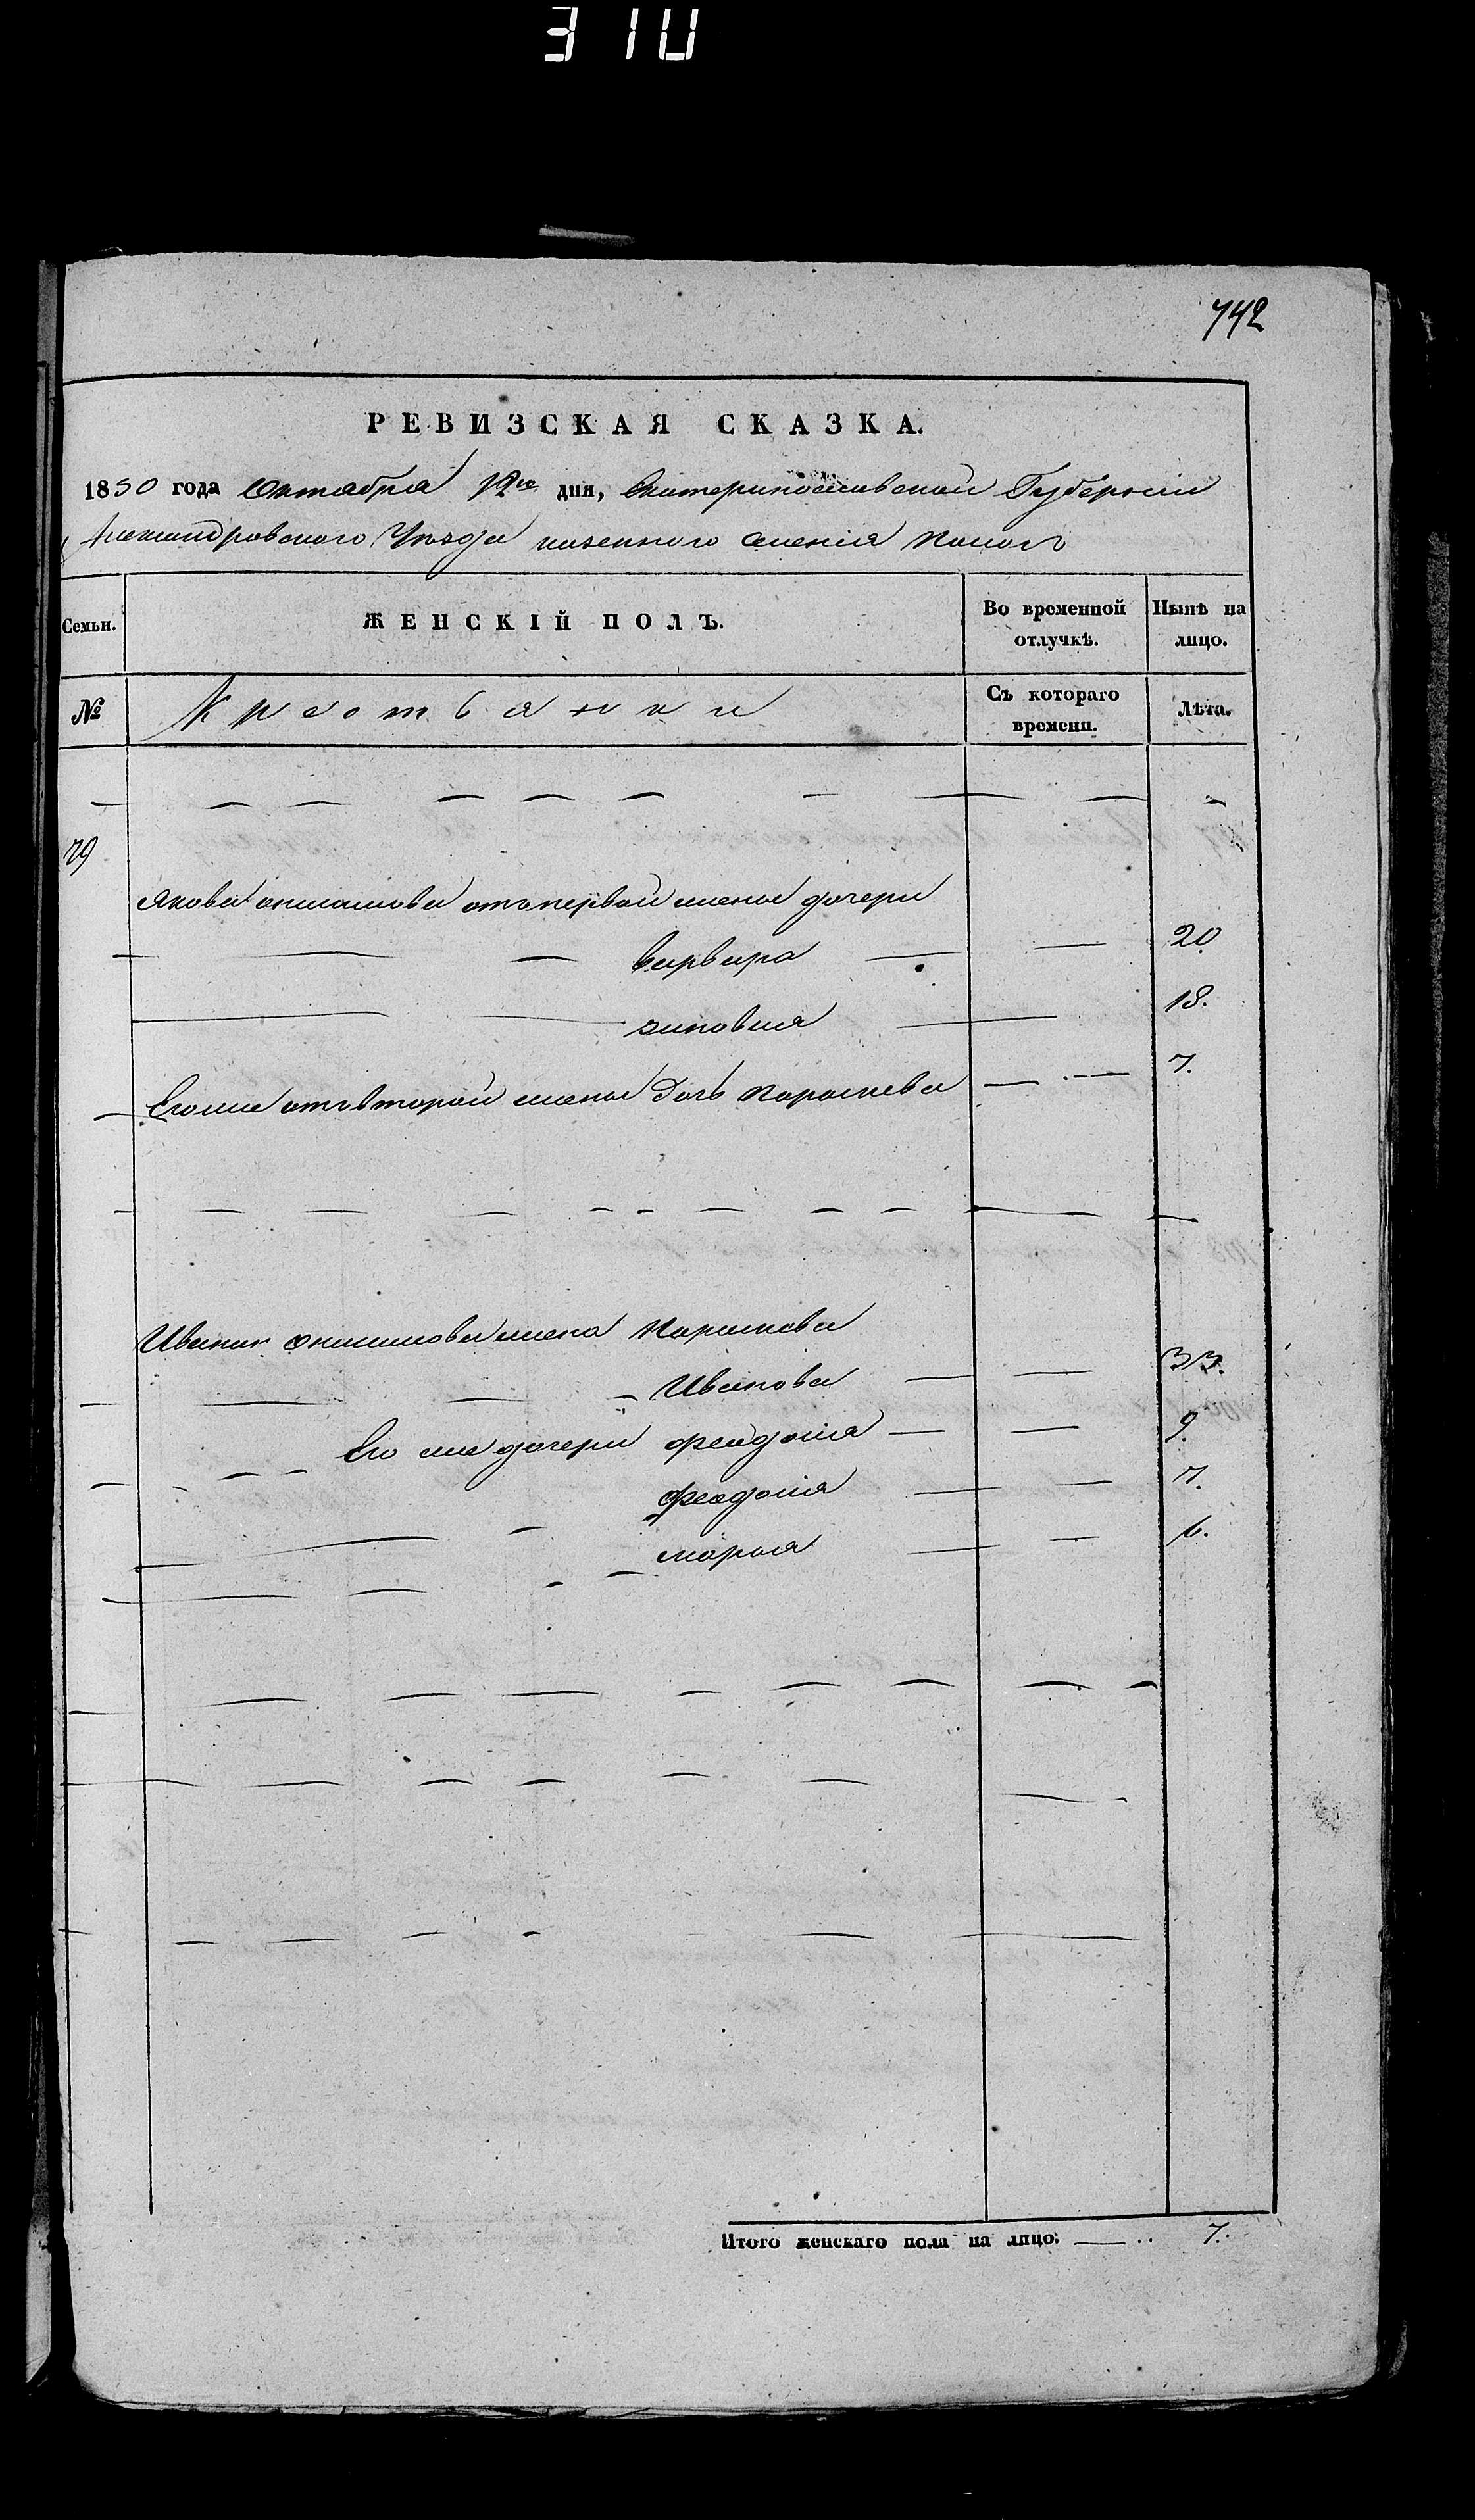 310
742
РЕВИЗСКАЯ СКАЗКА.
1850 года Октября 12го дня, Екатеринославской Губернии
Александровского Уезда казенного селения
Семьи.
ЖЕНСКІЙ ПОЛЪ.
Во временной отлучкѣ.
Нынѣ на лицо.
№
Крестьянки
Съ котораго времени.
Лѣта.
79
Якова онисимова отъ первой жены дочери
варвара 20.
зиновия 18.
Его же отъ второй жены Дочь параскева 7.
Ивана онисимова жена Параскева
Иванова 33.
Его же дочери феодосия 9.
феодосия 7.
марья 6.
Итого женскаго пола на лицо: 7.